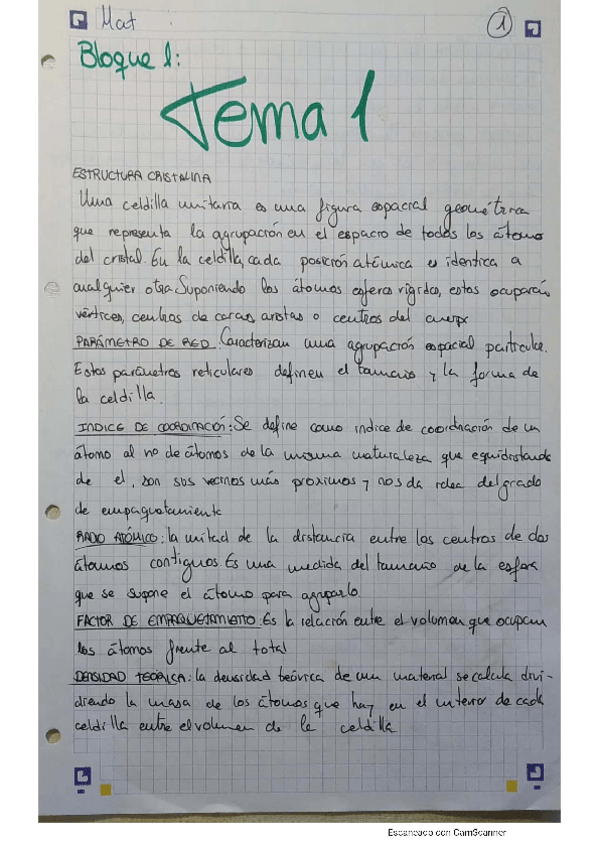 Mat
1
Bloque 1:
Tema 1
ESTRUCTURA CRISTALINA
Una celdilla unitaria es una figura espacial geométrica
que representa la agrupación en el espacio de todos los átomos
del cristal. En la celdilla, cada posición atómica es identica a
cualquier otra. Suponiendo los átomos esferas rígidas, estos ocuparán
vértices, centros de caras, aristas o centros del cuerpo
PARÁMETRO DE RED. Caracterizan una agrupación espacial particular.
Estos parámetros reticulares definen el tamaño y la forma de
la celdilla.
INDICE DE COORDINACIÓN: Se define como indice de coordinación de un
átomo al no de átomos de la misma naturaleza que equidistando
de el, son sus vecinos más proximos y nos da idea del grado
de empaquetamiento
RADIO ATÓMICO: la mitad de la distancia entre los centros de dos
átomos contiguos. Es una medida del tamaño de la esfera
que se supone el átomo para agruparlo
FACTOR DE EMPAQUETAMIENTO: Es la relación entre el volumen que ocupan
los átomos frente al total
DENSIDAD TEÓRICA: la densidad teórica de un material se calcula divi-
diendo la masa de los átomos que hay en el interior de cada
celdilla entre el volumen de la celdilla
Escaneado con CamScanner